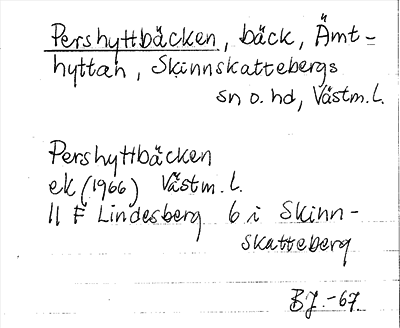 Pershyttbäcken, bäck, Ämt-
hyttan, Skinnskattebergs
sn o. hd, Västm. L.
Pershyttbäcken
ek (1966) Västm. L.
11 F Lindesberg 6 i Skinn-
skatteberg
BJ.-67.